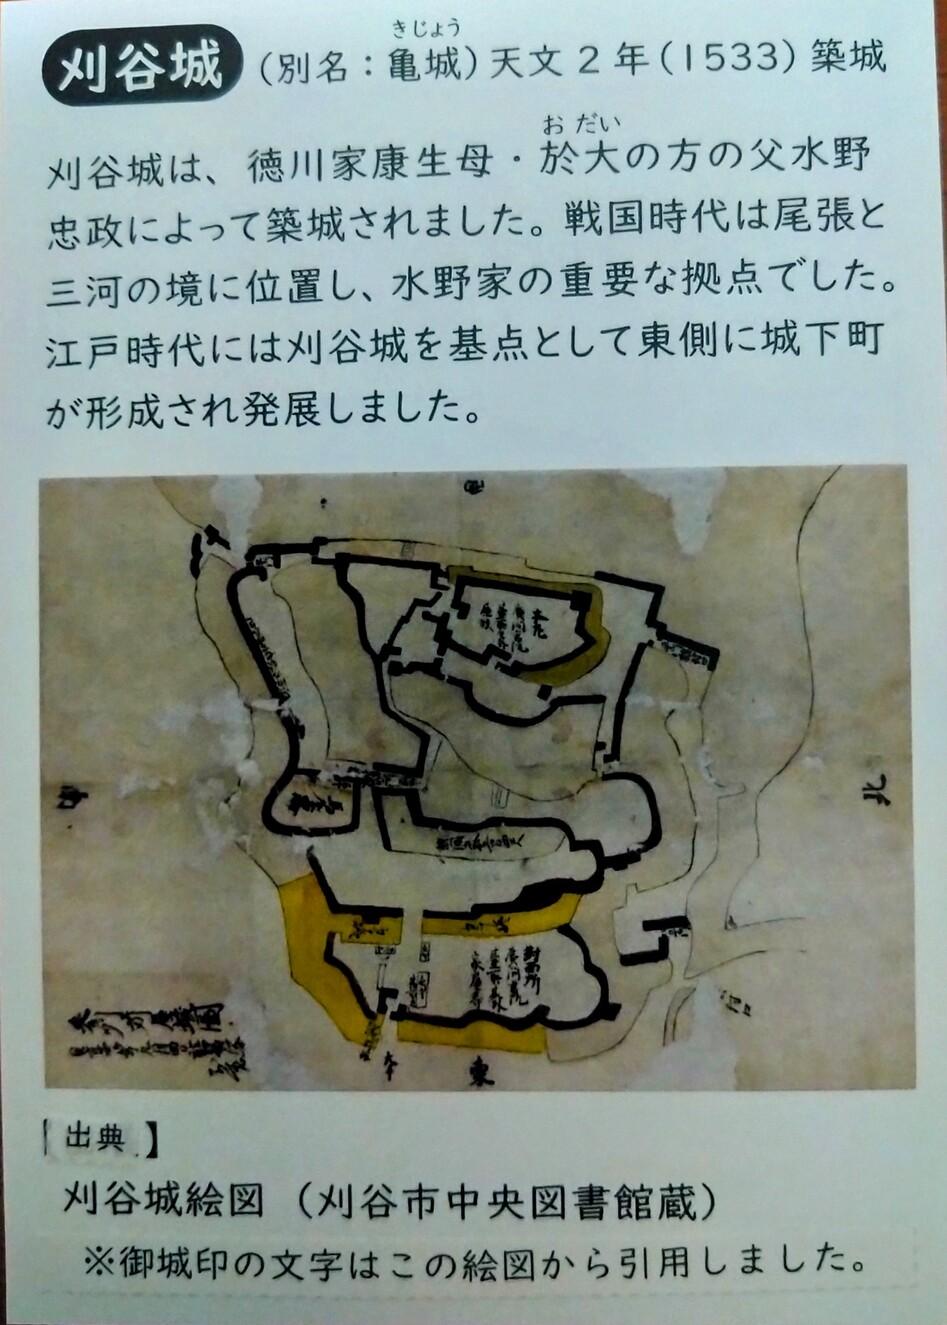 刈谷城 (別名：亀城) 天文2年(1533) 築城
きじょう
刈谷城は、徳川家康生母・於大の方の父水野
おだい
忠政によって築城されました。戦国時代は尾張と
三河の境に位置し、水野家の重要な拠点でした。
江戸時代には刈谷城を基点として東側に城下町
が形成され発展しました。
北
本丸
東
【出典】
刈谷城絵図 (刈谷市中央図書館蔵)
※御城印の文字はこの絵図から引用しました。